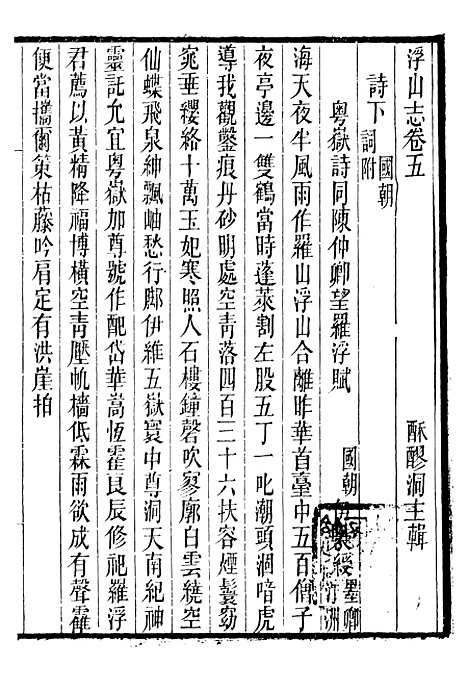 浮山志卷五　酥醪洞主輯
詩下 國朝 詞附
粵嶽詩同陳仲卿望羅浮賦　國朝 伊秉綬 墨卿 汀洲
海天夜半風雨作羅山浮山合離昨華首臺中五百僊子
夜亭邊一雙鶴當時蓬萊割左股五丁一叱潮頭涸喑虎
導我觀鑿痕丹砂明處空靑落四百三十六扶容煙鬟窈
窕垂纓絡十萬玉妃寒照人石樓鐘磬吹寥廓白雲繞空
仙蝶飛泉紳飄岫愁行腳伊維五嶽寰中尊洞天南紀神
靈託允宜粵嶽加尊號作配岱華嵩恆霍艮辰修祀羅浮
君薦以黃精降福博橫空靑壓帆檣低霖雨欲成有聲霍
便當攜爾策枯藤吟肩定有洪崖拍